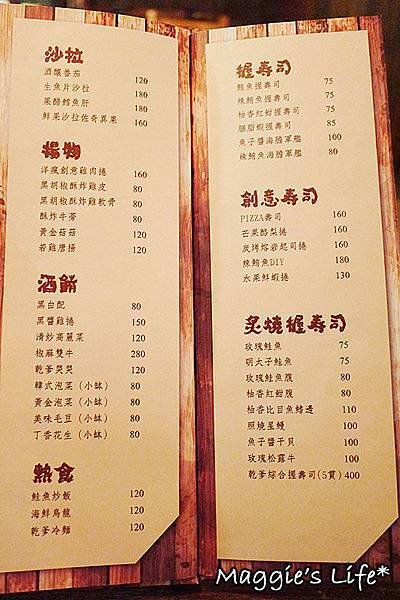 沙拉
酒釀番茄 120
生魚片沙拉 180
果醋鱈魚肝 180
鮮果沙拉佐奇異果 160
揚物
洋瘋創意雞肉捲 160
黑胡椒酥炸雞皮 80
黑胡椒酥炸雞軟骨 80
酥炸牛蒡 80
黃金菇菇 120
若雞唐揚 120
酒餚
黑白配 80
黑醬雞捲 150
清炒高麗菜 120
椒麻雙牛 280
乾爹煲煲 120
韓式泡菜(小缽) 80
黃金泡菜(小缽) 80
美味毛豆(小缽) 80
丁香花生(小缽) 80
熱食
鮭魚炒飯 120
海鮮烏龍 120
乾爹冷麵 120
握壽司
鮪魚握壽司 75
辣鮪魚握壽司 75
柚香紅魽握壽司 75
胭脂蝦握壽司 85
魚子醬海膽軍艦 100
辣鮪魚海膽軍艦 80
創意壽司
PIZZA壽司 160
芒果酪梨捲 160
炭烤熔岩起司捲 160
辣鮪魚DIY 180
水果鮮蝦捲 130
炙燒握壽司
玫瑰鮭魚 75
明太子鮭魚 75
玫瑰鮭魚腹 80
柚香紅魽腹 80
柚香比目魚鰭邊 110
照燒星鰻 100
魚子醬干貝 100
玫瑰松露牛 100
乾爹綜合握壽司(5貫) 400
Maggie's Life*